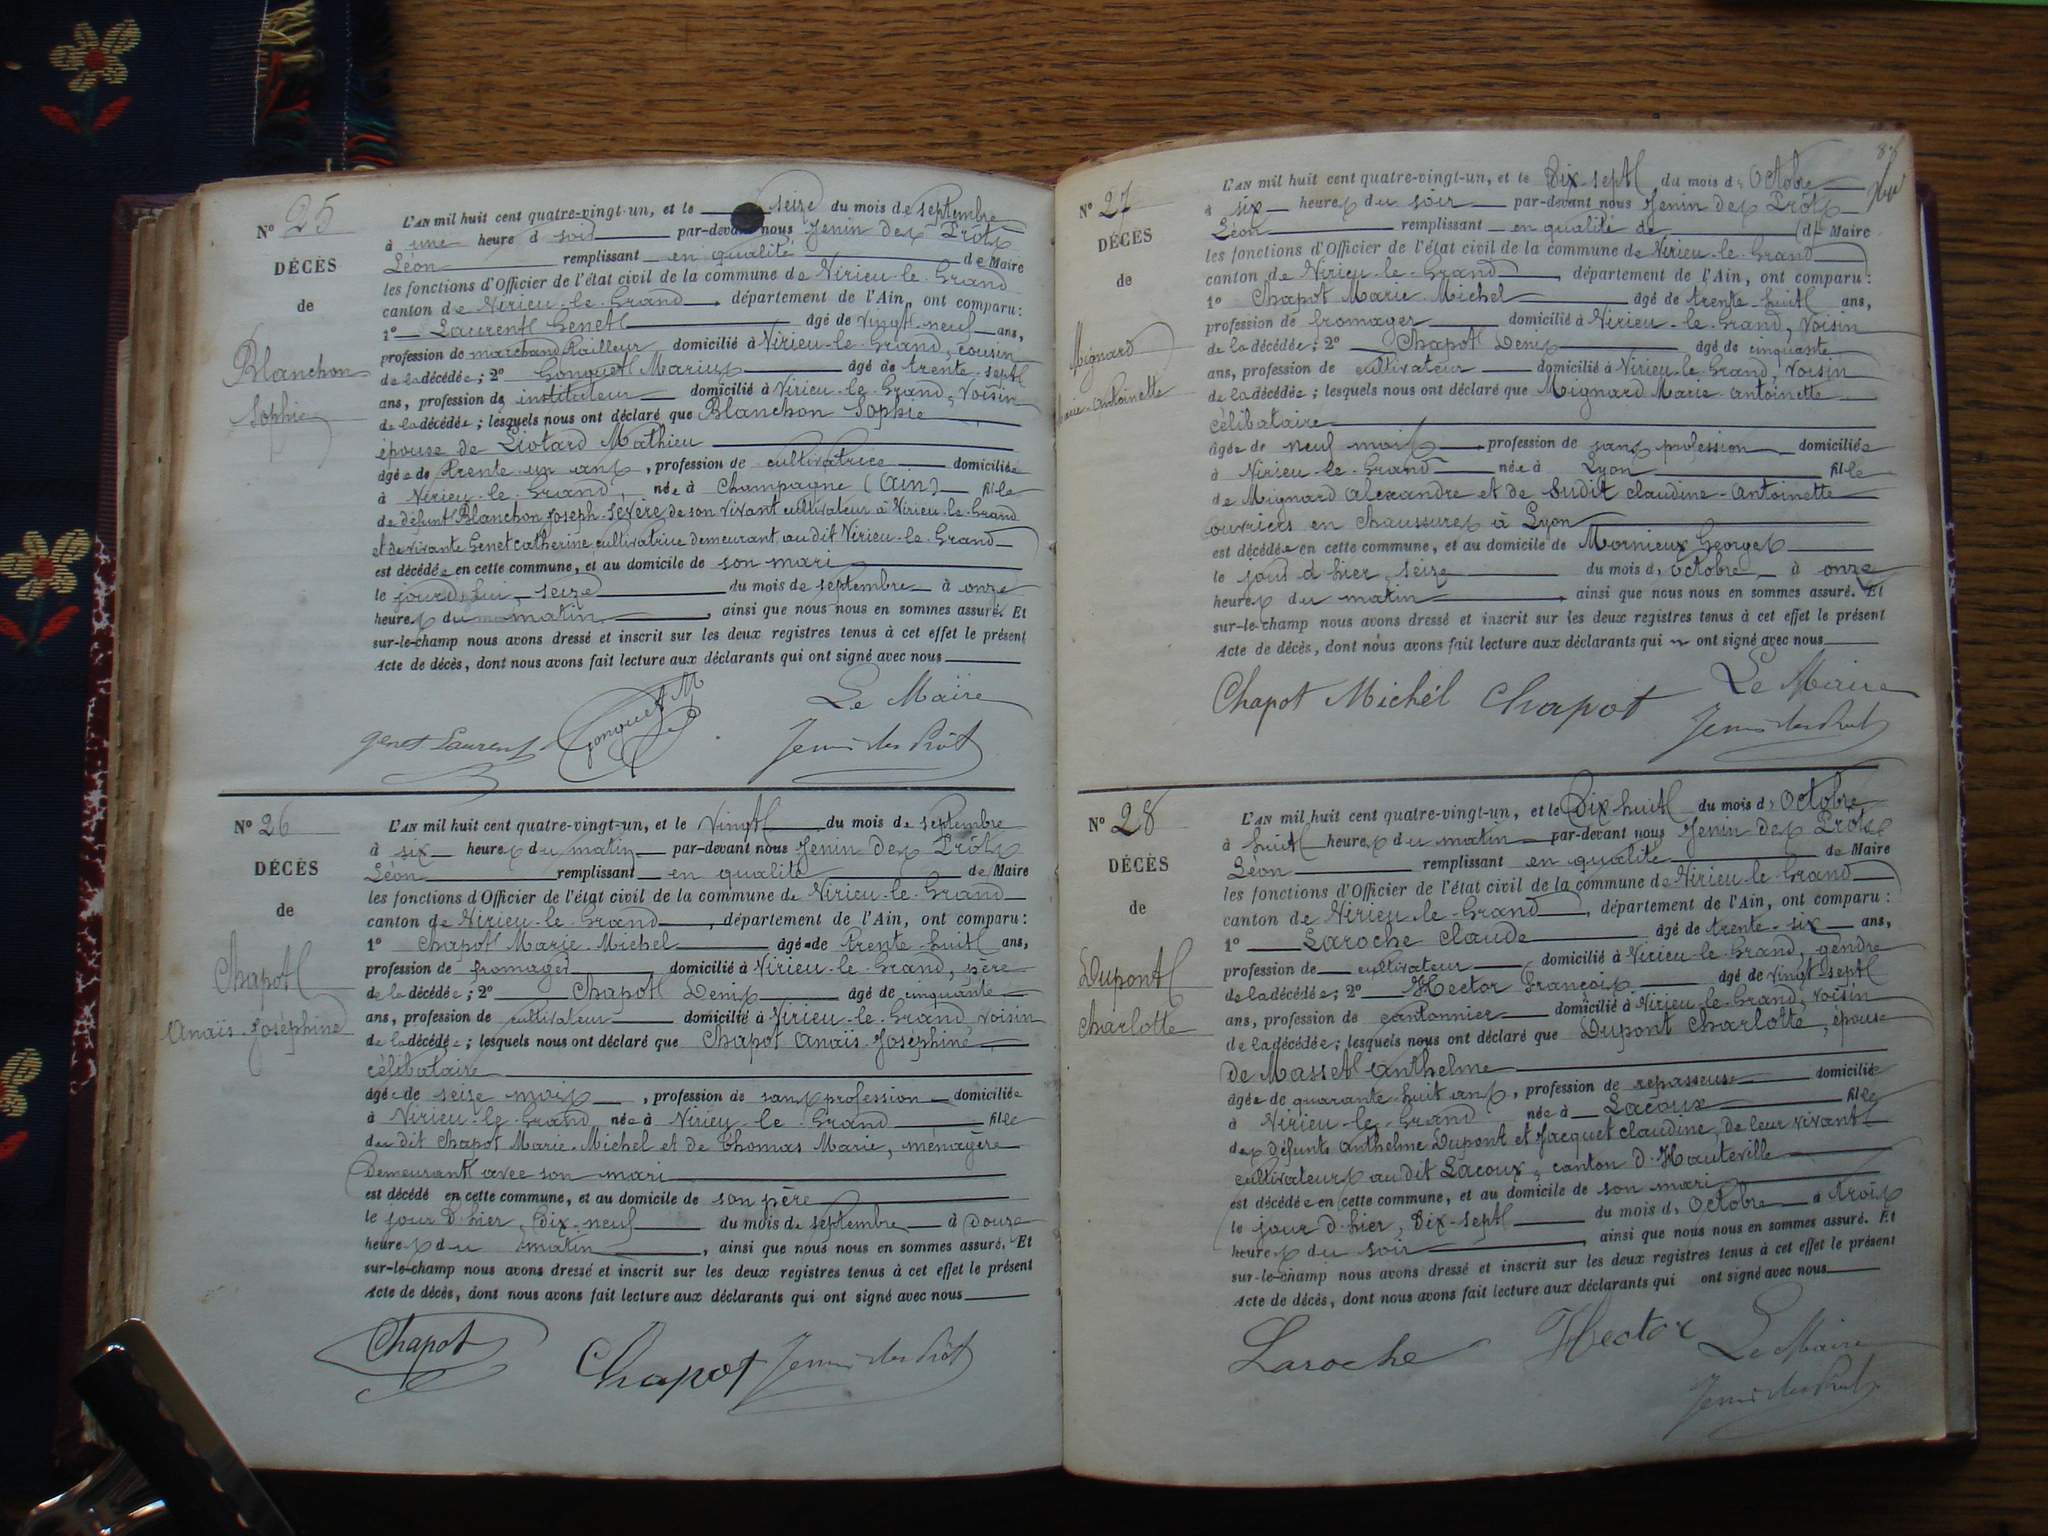 N° 25
DÉCÈS
de
Blanchon
Sophie
L'AN mil huit cent quatre-vingt-un, et le seize du mois de septembre
à une heure d soir par-devant nous Jenin des Prôts
Léon remplissant en qualité de Maire
les fonctions d'Officier de l'état civil de la commune de Virieu-le-Grand
canton de Virieu-le-Grand, département de l'Ain, ont comparu:
1° Laurent Genet âgé de vingt-neuf ans,
profession de marchand tailleur domicilié à Virieu-le-Grand, cousin
de la décédée; 2° Gonguet Marius âgé de trente-sept
ans, profession de instituteur domicilié à Virieu-le-Grand, voisin
de la décédée; lesquels nous ont déclaré que Blanchon Sophie
épouse de Liotard Mathieu
âgée de trente un ans, profession de cultivatrice domiciliée
à Virieu-le-Grand, née à Champagne (Ain) fille
de défunt Blanchon Joseph-Sévère de son vivant cultivateur à Virieu-le-Grand
et de vivante Genet Catherine, cultivatrice demeurant au dit Virieu-le-Grand
est décédée en cette commune, et au domicile de son mari
le jourd'hui seize du mois de septembre à onze
heures du matin, ainsi que nous nous en sommes assuré. Et
sur-le-champ nous avons dressé et inscrit sur les deux registres tenus à cet effet le présent
Acte de décès, dont nous avons fait lecture aux déclarants qui ont signé avec nous
Le Maire
genet Laurent Gonguet M Jenin des Prôts
N° 26
DÉCÈS
de
Chapot
Anaïs-Joséphine
L'AN mil huit cent quatre-vingt-un, et le vingt du mois de septembre
à six heures du matin par-devant nous Jenin des Prôts
Léon remplissant en qualité de Maire
les fonctions d'Officier de l'état civil de la commune de Virieu-le-Grand
canton de Virieu-le-Grand, département de l'Ain, ont comparu:
1° Chapot Marie-Michel âgé de trente-huit ans,
profession de fromager domicilié à Virieu-le-Grand, père
de la décédée; 2° Chapot Denis âgé de cinquante
ans, profession de cultivateur domicilié à Virieu-le-Grand, voisin
de la décédée; lesquels nous ont déclaré que Chapot Anaïs-Joséphine
célibataire
âgée de seize mois, profession de sans profession domiciliée
à Virieu-le-Grand née à Virieu-le-Grand fille
du dit Chapot Marie-Michel et de Thomas Marie, ménagère
demeurant avec son mari
est décédé en cette commune, et au domicile de son père
le jour d'hier, dix-neuf du mois de septembre à douze
heures du matin, ainsi que nous nous en sommes assuré. Et
sur-le-champ nous avons dressé et inscrit sur les deux registres tenus à cet effet le présent
Acte de décès, dont nous avons fait lecture aux déclarants qui ont signé avec nous
Chapot Chapot Jenin des Prôts
N° 27
DÉCÈS
de
Mignard
Marie-Antoinette
L'AN mil huit cent quatre-vingt-un, et le Dix-sept du mois d'Octobre
à six heures du soir par-devant nous Jenin des Prôts
Léon remplissant en qualité de de Maire
les fonctions d'Officier de l'état civil de la commune de Virieu-le-Grand
canton de Virieu-le-Grand, département de l'Ain, ont comparu:
1° Chapot Marie-Michel âgé de trente-huit ans,
profession de fromager domicilié à Virieu-le-Grand, voisin
de la décédée; 2° Chapot Denis âgé de cinquante
ans, profession de cultivateur domicilié à Virieu-le-Grand, voisin
de la décédée; lesquels nous ont déclaré que Mignard Marie-Antoinette
célibataire
âgée de neuf mois profession de sans profession domiciliée
à Virieu-le-Grand née à Lyon fille
de Mignard Alexandre et de Sudit Claudine-Antoinette
ouvriers en chaussures à Lyon
est décédée en cette commune, et au domicile de Mornieux Georges
le jour d'hier, seize du mois d'octobre à onze
heures du matin, ainsi que nous nous en sommes assuré. Et
sur-le-champ nous avons dressé et inscrit sur les deux registres tenus à cet effet le présent
Acte de décès, dont nous avons fait lecture aux déclarants qui ont signé avec nous
Chapot Michel Chapot Le Maire
Jenin des Prôts
N° 28
DÉCÈS
de
Dupont
Charlotte
L'AN mil huit cent quatre-vingt-un, et le Dix-huit du mois d'Octobre
à huit heures du matin par-devant nous Jenin des Prôts
Léon remplissant en qualité de Maire
les fonctions d'Officier de l'état civil de la commune de Virieu-le-Grand
canton de Virieu-le-Grand, département de l'Ain, ont comparu:
1° Laroche Claude âgé de trente-six ans,
profession de cultivateur domicilié à Virieu-le-Grand, gendre
de la décédée; 2° Hector François âgé de vingt-sept
ans, profession de cantonnier domicilié à Virieu-le-Grand, voisin
de la décédée; lesquels nous ont déclaré que Dupont Charlotte, épouse
de Masset Anthelme
âgée de quarante-huit ans, profession de repasseuse domiciliée
à Virieu-le-Grand née à Lacoux fille
des défunts Anthelme Dupont et Jacquet Claudine, de leur vivant
cultivateurs au dit Lacoux, canton d'Hauteville
est décédée en cette commune, et au domicile de son mari
le jour d'hier, Dix-sept du mois d'Octobre à trois
heures du soir, ainsi que nous nous en sommes assuré. Et
sur-le-champ nous avons dressé et inscrit sur les deux registres tenus à cet effet le présent
Acte de décès, dont nous avons fait lecture aux déclarants qui ont signé avec nous
Laroche Hector Le Maire
Jenin des Prôts